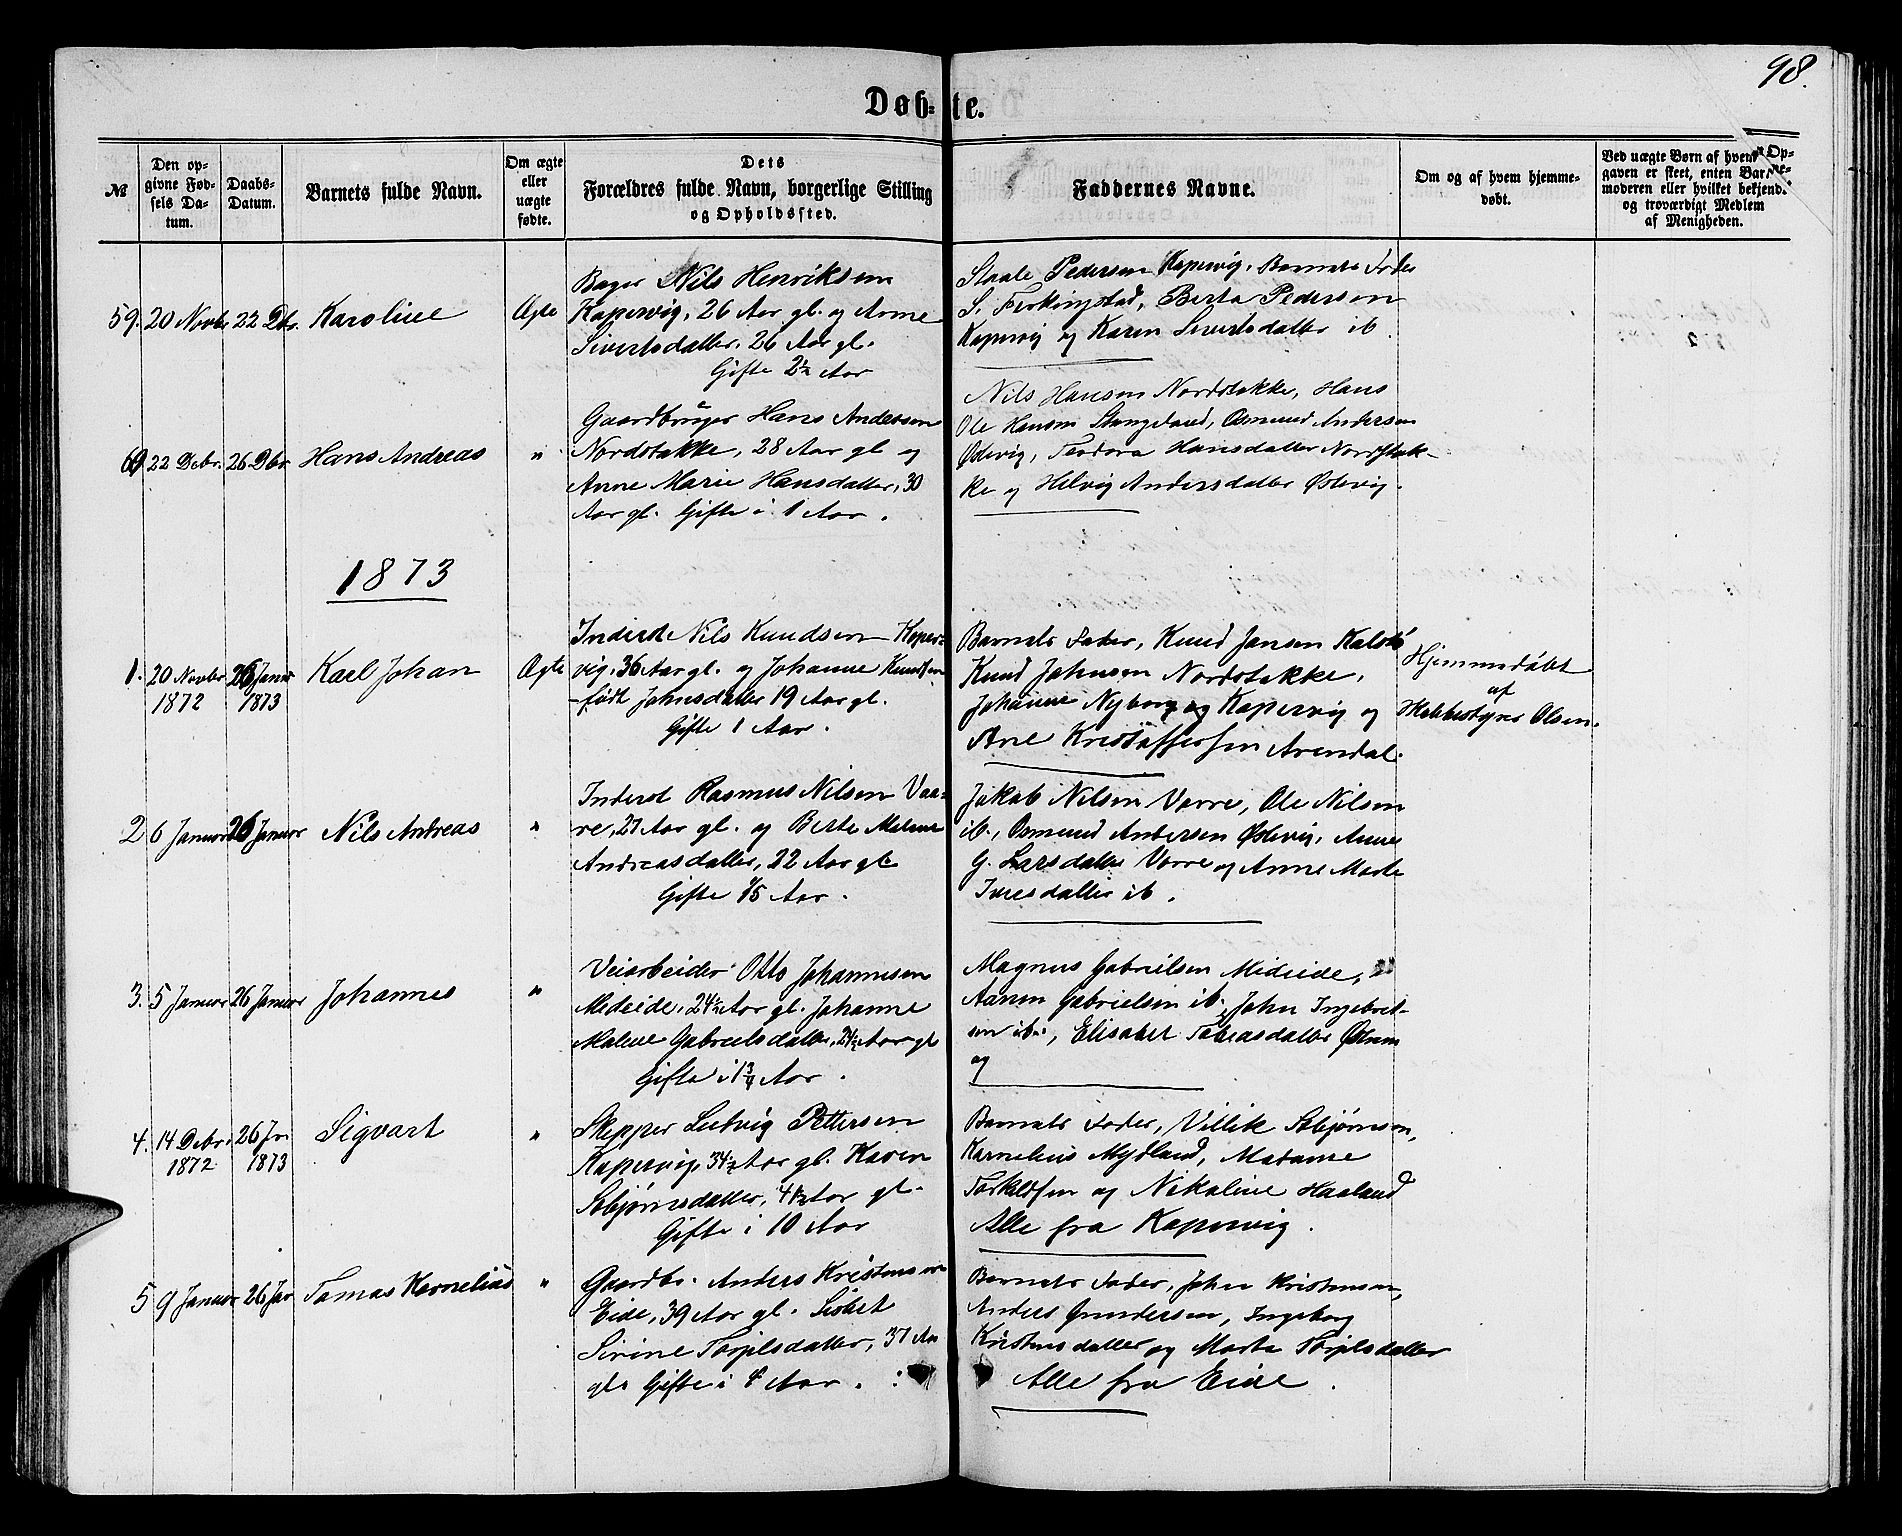 98.
Døb- te.
№
Den op-
givne Fød-
sels Da-
tum.
Daabs-
Datum.
Barnets fulde Navn.
Om ægte
eller
uægte
fødte.
Dets
Forældres fulde Navn, borgerlige Stilling
og Opholdssted.
Faddernes Navne.
Om og af hvem hjemme-
døbt.
Ved uægte Børn af hvem Op-
gaven er skeet, enten Barne-
moderen eller hvilket bekjendt
og troværdigt Medlem
af Menigheden.
59. 20 Novbr 22 Dbr. Karoline Ægte
Bager Nils Henriksen
Kapervig, 26 Aar gl. og Anne
Sivertsdatter, 26 Aar gl.
Gifte 2½ Aar
Staale Pedersen Kapervig, Barnets Fader
S. Ferkingstad, Berta Pedersen
Kapervig og Karen Sivertsdatter ib.
60 22 Debr. 26 Dbr. Hans Andreas "
Gaardbruger Hans Andersen
Nordstakke, 28 Aar gl og
Anne Marie Hansdatter, 30
Aar gl. Gifte i 1 Aar.
Nils Hansen Nordstakke, Hans
Ole Hansen Stangeland, Osmund Andersen
Østevig, Teodora Hansdatter Nordstak-
ke og Helvig Andersdatter Østevig.
1873
1. 20 Novbr 1872 26 Januar 1873 Karl Johan Ægte
Inderst Nils Knudsen Koper-
vig, 36 Aar gl. og Johanne Knudsen
-født Johnsdatter 19 Aar gl.
Gifte 1 Aar.
Barnets Fader, Knud Jansen Kalstø
Knud Johnsen Nordstakke,
Johanne Nyborg og Kapervig og
Ane Kristoffersen Arendal.
Hjemmedøbt
af
Olsen.
2 6 Januar 26 Januar Nils Andreas "
Inderst Rasmus Nilsen Vaa-
re, 27 Aar gl. og Berte Malene
Andreasdatter, 22 Aar gl.
Gifte Aar.
Jakob Nilsen Vorre, Ole Nilsen
ib., Osmund Andersen Østevig, Anne
G. Larsdatter Vorre og Anne Marte
Iversdatter ib.
3. 5 Januar 26 Januar Johannes "
Veiarbeider Otto Johannesen
Medeide, 24½ Aar gl. Johanne
Malene Gabrielsdatter, 24½ Aar gl
Gifte i 1¾ Aar.
Magnus Gabrielsen Mideide,
Aanen Gabrielsen ib. John Ingebret-
sen ib., Elisabet Tobiasdatter
og
4. 14 Debr. 1872 26 Jr. 1873 Sigvart "
Skipper Ludvig Pettersen
Kapervig, 34½ Aar gl. Karen
Sebjørnsdatter, 41½ Aar gl.
Gifte i 10 Aar
Barnets Fader, Villik Sebjørnsen,
Karnelius Mydland, Madame
Torkelsen og Nikoline Haaland
Alle fra Kapervig.
5 9 Januar 26 Jar Tomas Kornelius "
Gaardbr. Anders Kristensen
Eide, 39 Aar gl. Sisbet
Sirine Torjilsdatter, 37 Aar
gl. Gifte i 8 Aar.
Barnets Fader, John Kristensen,
Anders Gundersen, Ingeborg
Kristensdatter og Marta Torjilsdatter
Alle fra Eide.